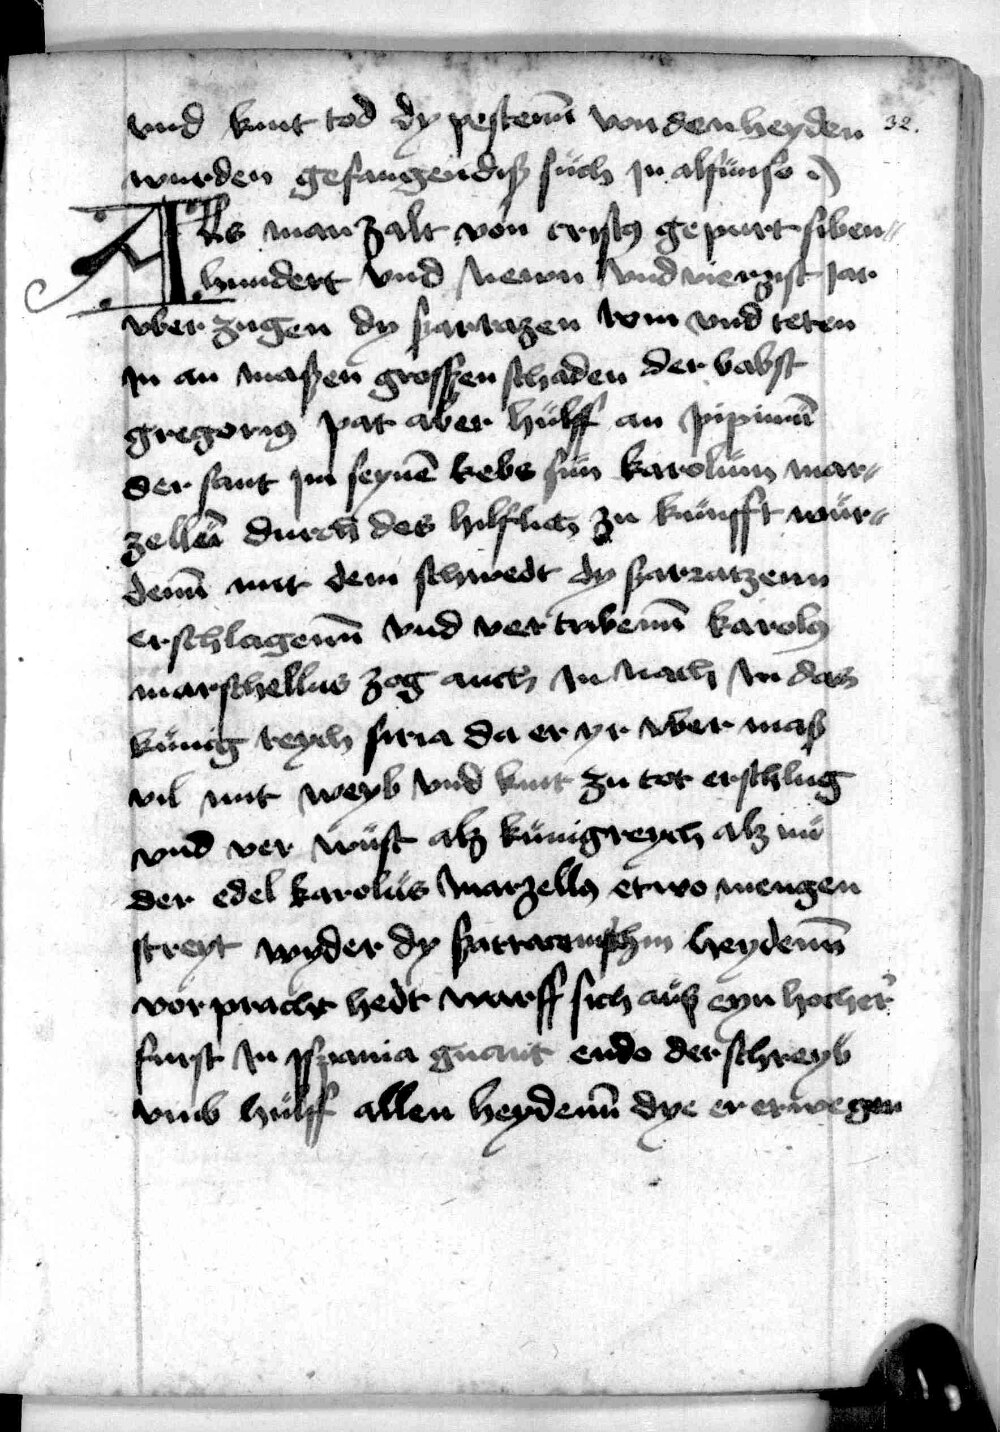 vnd kunt tod dy pestenn̄ von den heyden
32.
wurden gefangen dysz such in alfunso
Als man zalt von cristꝰ gepurt siben〃
hundert vnd Newn vnd vierzist jar
vber zugen dy sarrazen rom vnd teten
in an maszen grosszen schaden der babst
gregoriꝰ pat aber hülff an pipinū
der sant jm seynē kebs sün karolüm mar〃
zellū durch des hilflich zu künfft wür〃
denn̄ mit dem schwedt dy sarratzenn
erschlagenn̄ vnd vertribenn̄ karolꝰ
marschellus zog auch in nach in das
künig reych siria da er yr vber masz
vil mit weyb vnd kint zu tot erschlug
vnd ver wüst alz künigreych alz nü
der edel karolüs Marzellꝰ etwo mengen
streyt wyder dy heydenn̄
vorpracht hedt warff sich aüsz eyn hocher
furst in ispania gnant endo der schreyb
vmb hülff allen heydenn̄ dye er erwegen